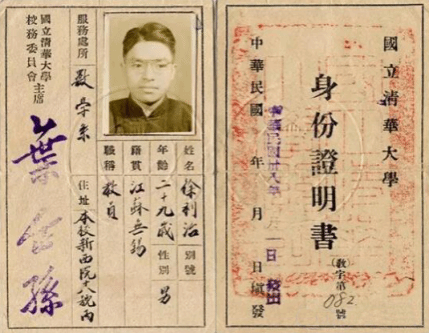 國立清華大學
身份證明書
(教字第082號)
中華民國 年 月 日填發
姓名 徐利治 別號
年齡 二十九歲 性別 男
籍貫 江蘇無錫
職稱 教員
住址 本校新西院十八號內
服務處所 數學系
國立清華大學
校務委員會主席
葉企孫